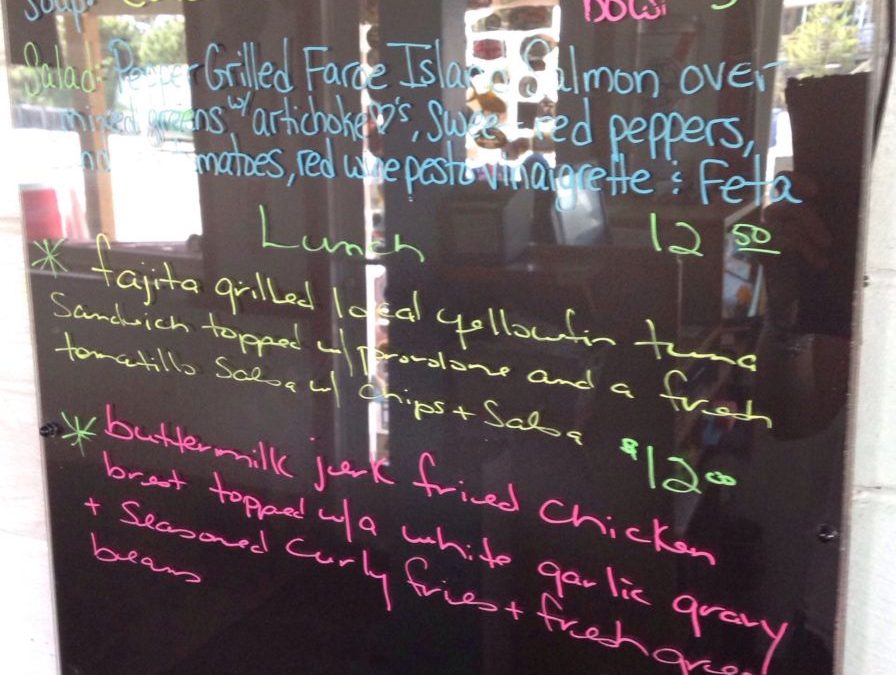 Soup:
Bowl
Salad: Pepper Grilled Faroe Island Salmon over
mixed greens w/ artichoke ♡'s, Sweet red peppers,
red wine pesto vinaigrette & Feta
Lunch 12 50
* fajita grilled local yellowfin tuna
Sandwich topped w/ provolone and a fresh
tomatillo Salsa w/ Chips + Salsa $12 00
* buttermilk jerk fried chicken
brest topped w/ a white garlic gravy
+ Seasoned Curly fries + fresh green
beans